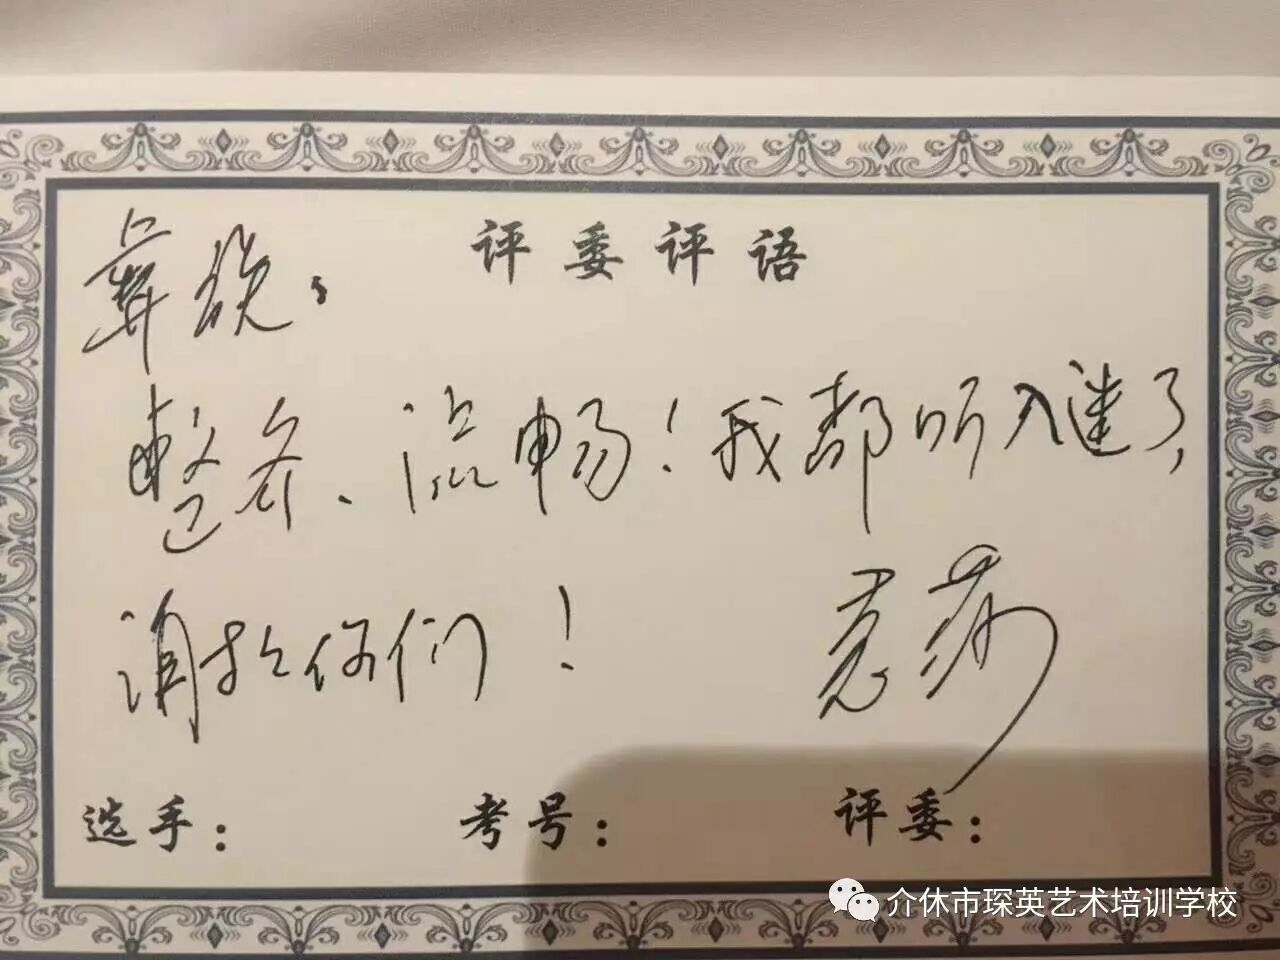 评委评语
彝族:
整齐、流畅！我都听入迷了,
谢谢你们！
选手：
考号：
评委：
介休市琛英艺术培训学校